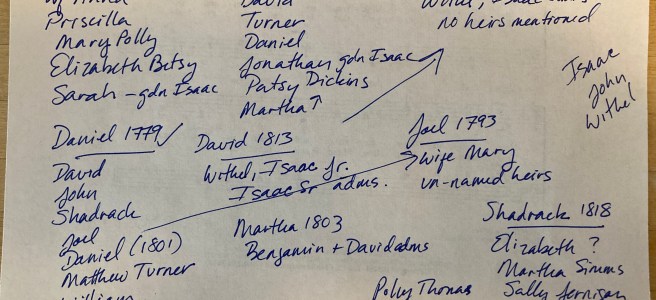 Priscilla
Mary Polly
Elizabeth Betsy
Sarah - gdn Isaac
David
Turner
Daniel
Jonathan gdn Isaac
Patsy Dickins
Martha
no heirs mentioned
Isaac
John
Withel
Daniel 1779 ✓
David
John
Shadrack
Joel
Daniel (1801)
Matthew Turner
William
David 1813
Withel, Isaac Jr.
Isaac Sr adms.
Martha 1803
Benjamin + David adms
Joel 1793
wife Mary
un-named heirs
Shadrack 1818
Elizabeth ?
Martha Simms
Sally Jernigan
Polly Thomas